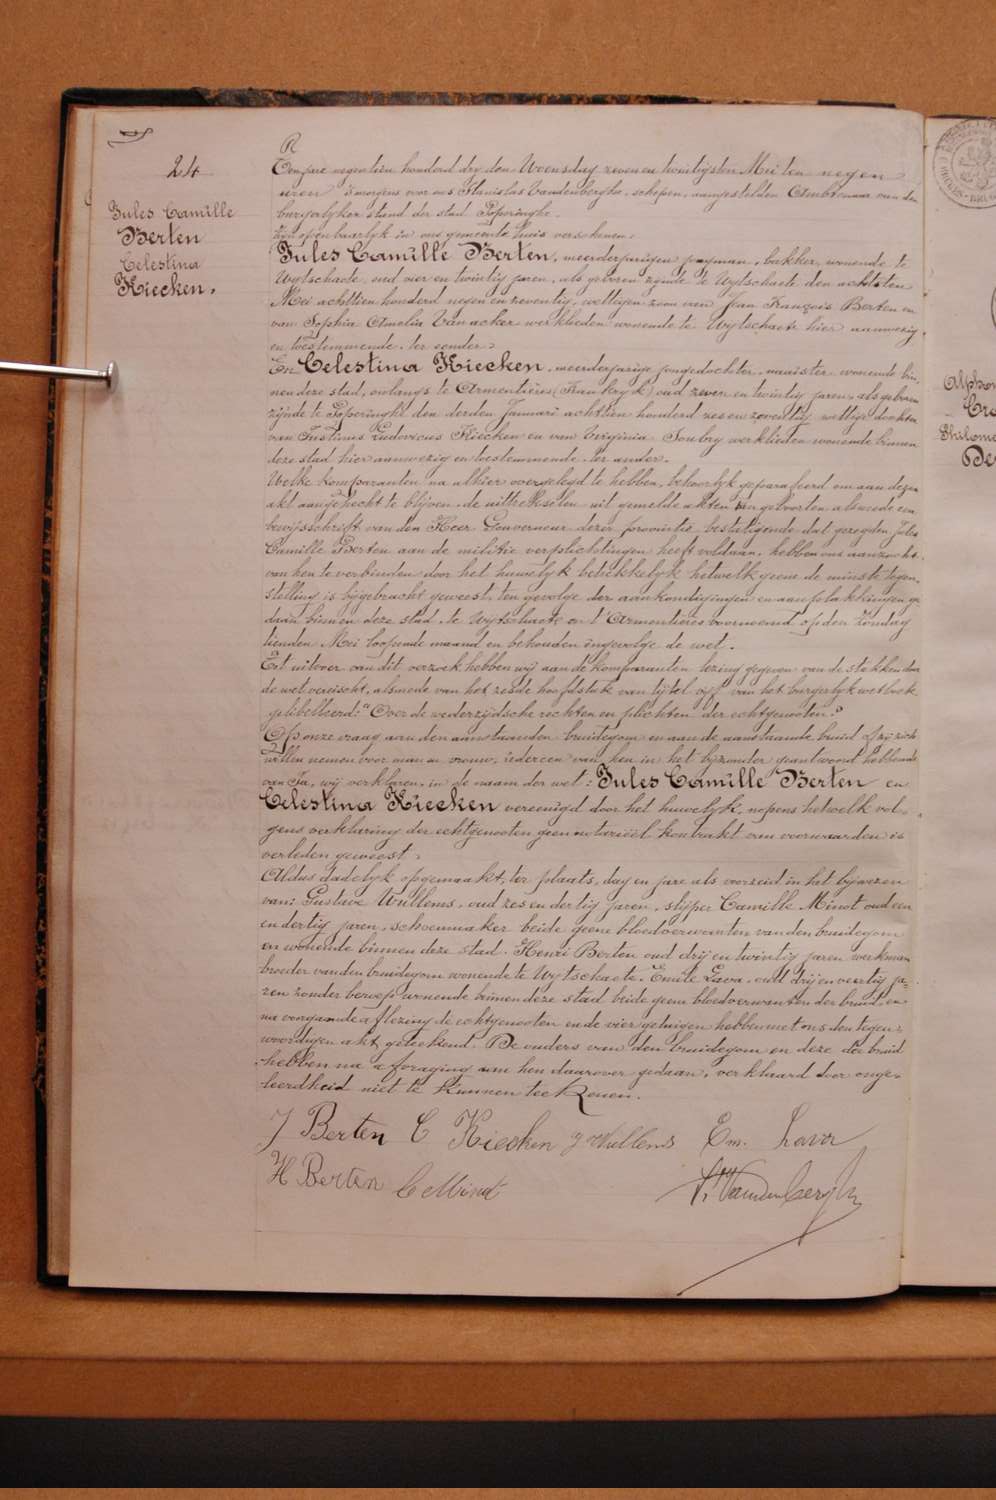 24
Jules Camille
Berten
Celestina
Kiecken.
R
Ten jare negentien honderd dry den Woensdag zeven en twintigsten Mei ten negen
uren s'morgens voor ons Stanislas Vandenberghe, schepen, aangestelden Ambtenaar van den
burgerlyken stand der stad Poperinghe.
Zijn openbaarlyk in ons gemeente huis verschenen.
Jules Camille Berten, meerderjarigen jongman, bakker, wonende te
Wytschaete, oud vier en twintig jaren, als geboren zijnde te Wytschaete den achtsten
Mei achttien honderd negen en zeventig, wettigen zoon van Jean François Berten en
van Sophia Amelia Vanacker werklieden wonende te Wytschaete hier aanwezig
en toestemmende. ter eender.
En Celestina Kiecken, meerderjarige jongedochter, wonende bin
nen deze stad, onlangs te Armentières (Frankryk) oud zeven en twintig jaren, als geboren
zijnde te Poperinghe den derden Januari achttien honderd zes en zeventig wettige dochter
van Justinus Ludovicus Kiecken en van Virginia Soubry werklieden wonende binnen
deze stad hier aanwezig en toestemmende. ter ander.
Welke komparanten na alhier overgelegd te hebben, behoorlyk geparafeerd om aan dezen
akt aangehecht te blijven de uittrekselen uit gemelde akten van geboorten alsmede een
bewijsschrift van den Heer Gouverneur dezer provincie bestatigende dat gezegden Jules
Camille Berten aan de militie verplichtingen heeft voldaan, hebben ons aanzocht
van hen te verbinden door het huwelyk betrekkelyk hetwelk geene de minste tegen
stelling is bijgebracht geweest, ten gevolge der aankondigingen en aanplakkingen ge
daan binnen deze stad, te Wytschaete en t'Armentières voornoemd op den Zondag
tienden Mei loopende maand en behouden ingevolge de wet.
Tot uitvoer van dit verzoek hebben wij aan de komparanten lezing gegeven van de stukken door
de wet vereischt, alsmede van het zesde hoofdstuk van tijtel vyf van het burgerlyk wetboek
gelibelleerd: "Over de wederzijdsche rechten en plichten der echtgenooten."
Op onze vraag aan den aanstaanden bruidegom en aan de aanstaande bruid of zij zich
willen nemen voor man en vrouw, iedereen van hen in het bijzonder geantwoord hebbende
van Ja, wij verklaren, in de naam der wet: Jules Camille Berten en
Celestina Kiecken vereenigd door het huwelyk, nopens hetwelk vol-
gens verklaring der echtgenooten geen notariëel kontrakt van voorwaarden is
verleden geweest.
Aldus dadelyk opgemaakt, ter plaats, dag en jare als voorzeid in het bijwezen
van: Gustave Wullems, oud zes en dertig jaren, slyper Camille Minot oud een
en dertig jaren, schoenmaker beide geene bloedverwanten van den bruidegom
en wonende binnen deze stad. Henri Berten oud drij en twintig jaren werkman
broeder van den bruidegom wonende te Wytschaete. Emile Lava, oud drij en veertig ja-
ren zonder beroep wonende binnen deze stad beide geene bloedverwanten der bruid, en
na voorgaande aflezing de echtgenooten en de vier getuigen hebben met ons den tegen-
woordigen akt geteekend. De ouders van den bruidegom en deze der bruid
hebben na afvraging aan hen daarover gedaan, verklaard door onge-
leerdheid niet te kunnen teekenen.
J Berten C Kiecken G Wullems Em. Lava
H Berten C Minot St Vandenberghe
Alphon
Cre
Philome
De